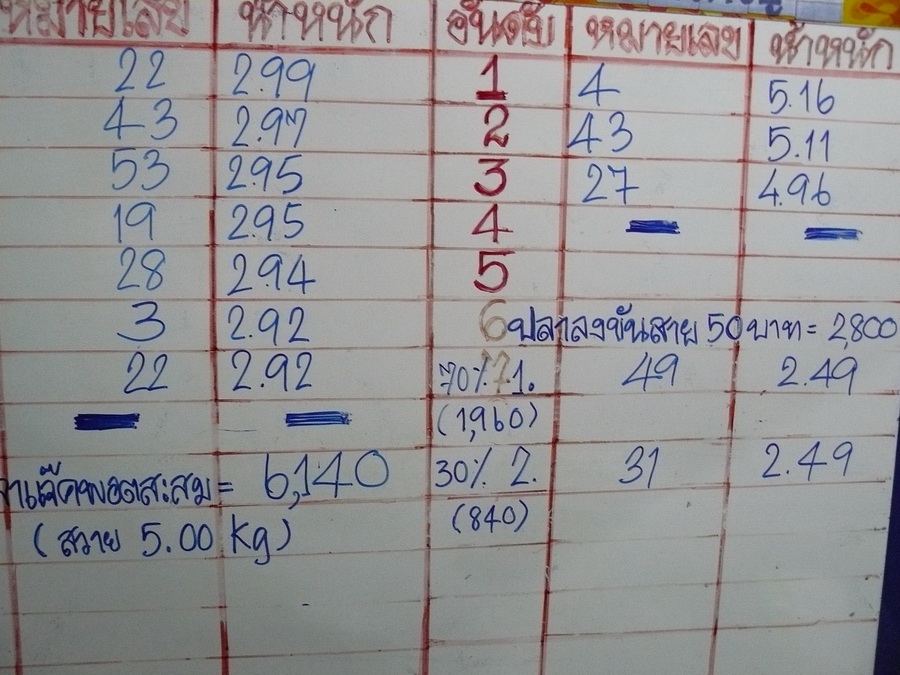 หมายเลข น้ำหนัก อันดับ หมายเลข น้ำหนัก
22 2.99 1 4 5.16
43 2.97 2 43 5.11
53 2.95 3 27 4.96
19 2.95 4
28 2.94 5
3 2.92 6 ปลาลงขันสาย 50 บาท = 2,800
22 2.92 70% 7 1. 49 2.49
(1,960)
แจ๊คพอตสะสม = 6,140 30% 2. 31 2.49
(สวาย 5.00 Kg) (840)